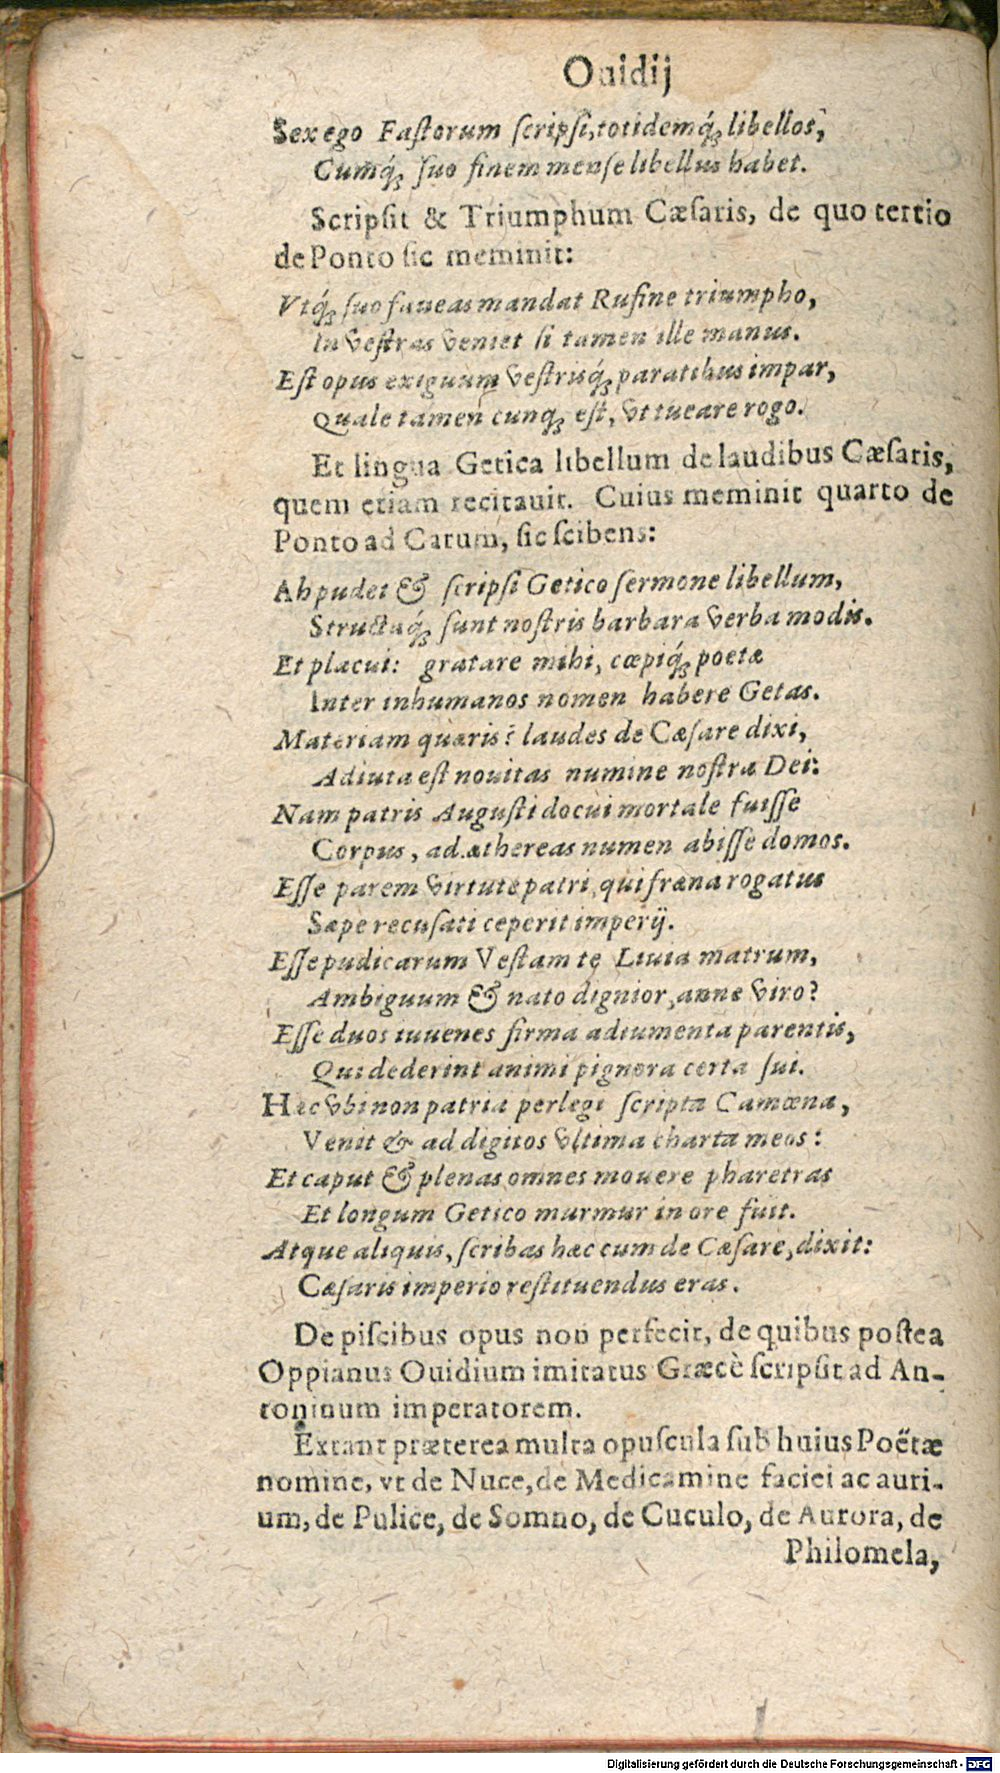 Ouidij
Sex ego Faſtorum ſcripſi, totidemq́ꝫ libellos,
Cumq́ꝫ ſuo finem menſe libellus habet.
Scripſit & Triumphum Cæſaris, de quo tertio
de Ponto ſic meminit:
Vtq́ꝫ ſuo faueas mandat Rufine triumpho,
In veſtras veniet ſi tamen ille manus.
Eſt opus exiguum veſtrisq́ꝫ paratibus impar,
Quale tamen cunqꝫ eſt, vt tueare rogo.
Et lingua Getica libellum de laudibus Cæſaris,
quem etiam recitauit. Cuius meminit quarto de
Ponto ad Carum, ſic ſcibens:
Ah pudet & ſcripſi Getico ſermone libellum,
Structaq́ꝫ ſunt noſtris barbara verba modis.
Et placui: gratare mihi, cœpiq́ꝫ poetæ
Inter inhumanos nomen habere Getas.
Materiam quæris? laudes de Cæſare dixi,
Adiuta eſt nouitas numine noſtra Dei:
Nam patris Auguſti docui mortale fuiſſe
Corpus, ad æthereas numen abiſſe domos.
Eſſe parem virtute patri, qui fræna rogatus
Sæpe recuſati ceperit imperij.
Eſſe pudicarum Veſtam te Liuia matrum,
Ambiguum & nato dignior, anne viro?
Eſſe duos iuuenes firma adiumenta parentis,
Qui dederint animi pignora certa ſui.
Hæc vbi non patria perlegi ſcripta Camœna,
Venit & ad digitos vltima charta meos:
Et caput & plenas omnes mouere pharetras
Et longum Getico murmur in ore fuit.
Atque aliquis, ſcribas hæc cum de Cæſare, dixit:
Cæſaris imperio reſtituendus eras.
De piſcibus opus non perfecit, de quibus poſtea
Oppianus Ouidium imitatus Græcè ſcripſit ad An-
toninum imperatorem.
Extant præterea multa opuſcula ſub huius Poëtæ
nomine, vt de Nuce, de Medicamine faciei ac auri-
um, de Pulice, de Somno, de Cuculo, de Aurora, de
Philomela,
Digitalisierung gefördert durch die Deutsche Forschungsgemeinschaft - DFG